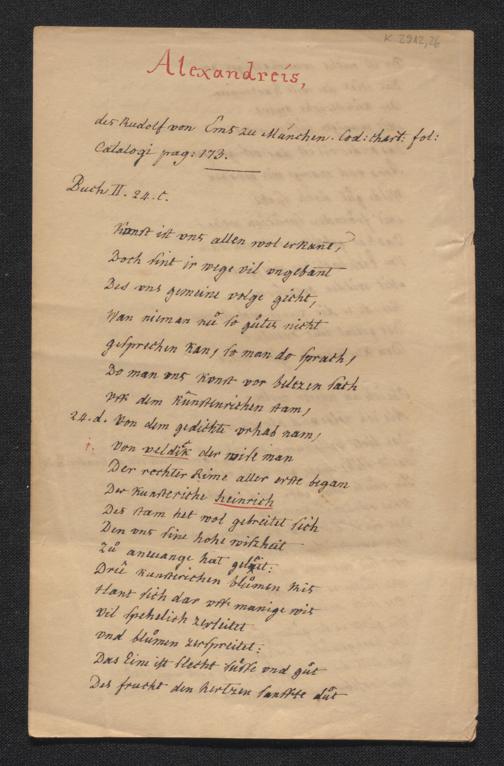 K 2912,26
Alexandreis,
des Rudolf von Ems zu München. Cod: chart: fol:
Catalogi pag: 173.
Buch II. 24. c.
Kunst ist vns allen wol erkant,
Doch sint ir wege vil vngebant
Des vns gemeine volge gicht,
Wan nieman nů so gůtes nicht
gesprechen kan, so man do sprach,
Do man vns Kunst vor belezen sach
vsz dem Kůnstenrichen stam,
24. d. Von dem gedichte vrhab nam,
1. von veldik der wise man
Der rechter Rime aller erste began
Der Kunsteriche Heinrich
Des stam het wol gebreitet sich
Den vns sine hohe wiszheit
Zů anevange hat
Drü Kunsterichen blůmen Ris
Hant sich dar vff manige wis
Vil spehelich Zerleitet
vnd blůmen Zerspreitet:
Das Eine ist slecht sůsse vnd gůt
Des frucht den Hertzen sanffte důt